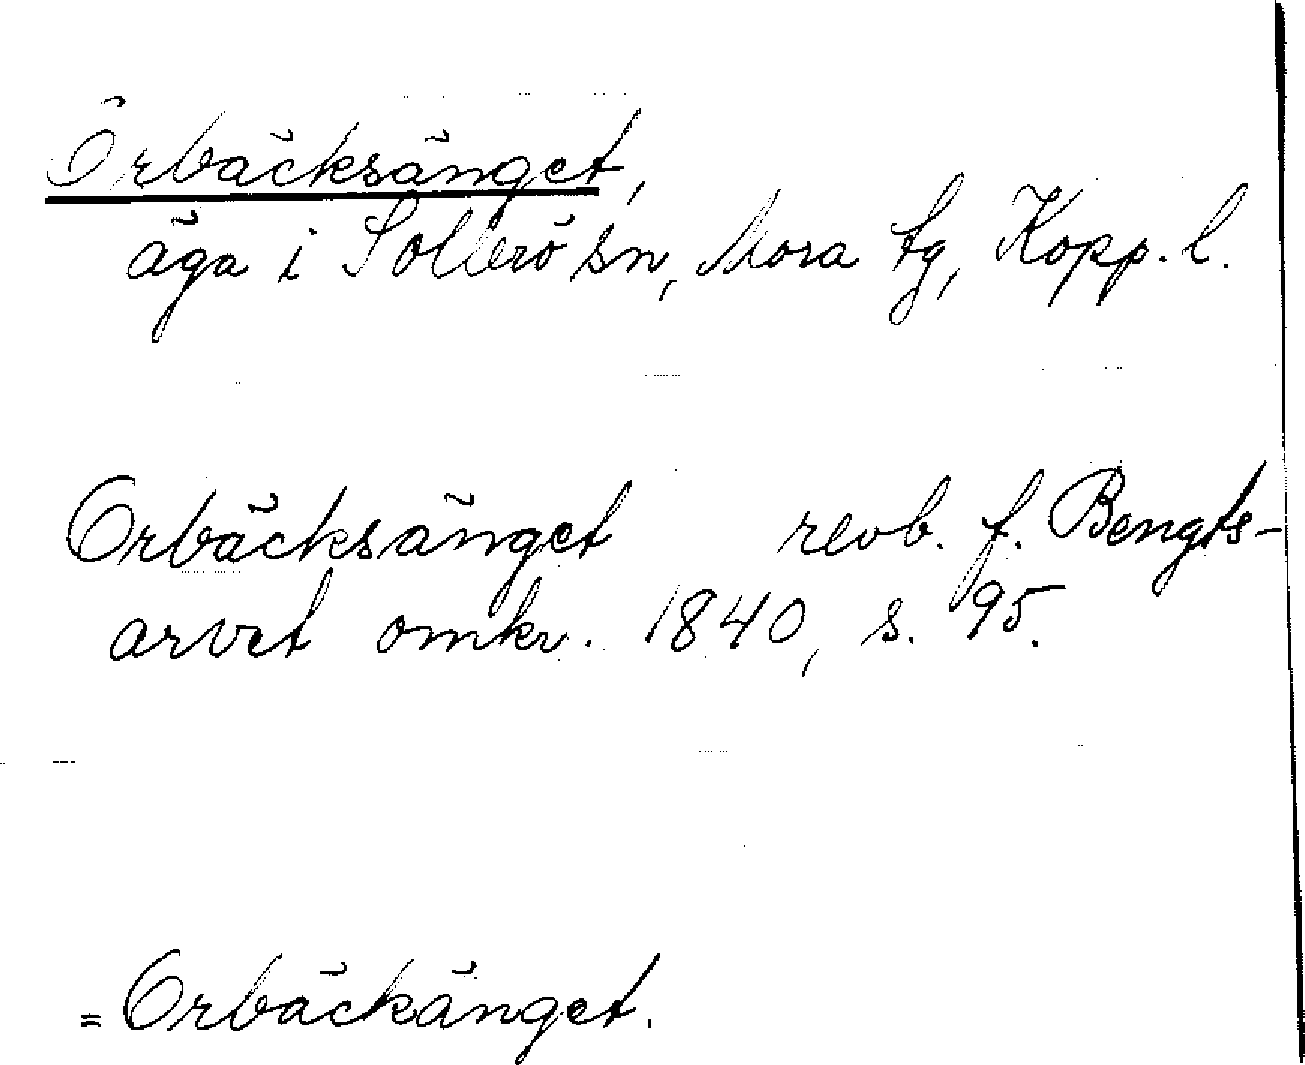 Örbäcksänget,
äga i Sollerö sn, Mora tg, Kopp. l.
Orbäcksänget revb. f. Bengts-
arvet omkr. 1840, s. 95.
= Orbäckänget.